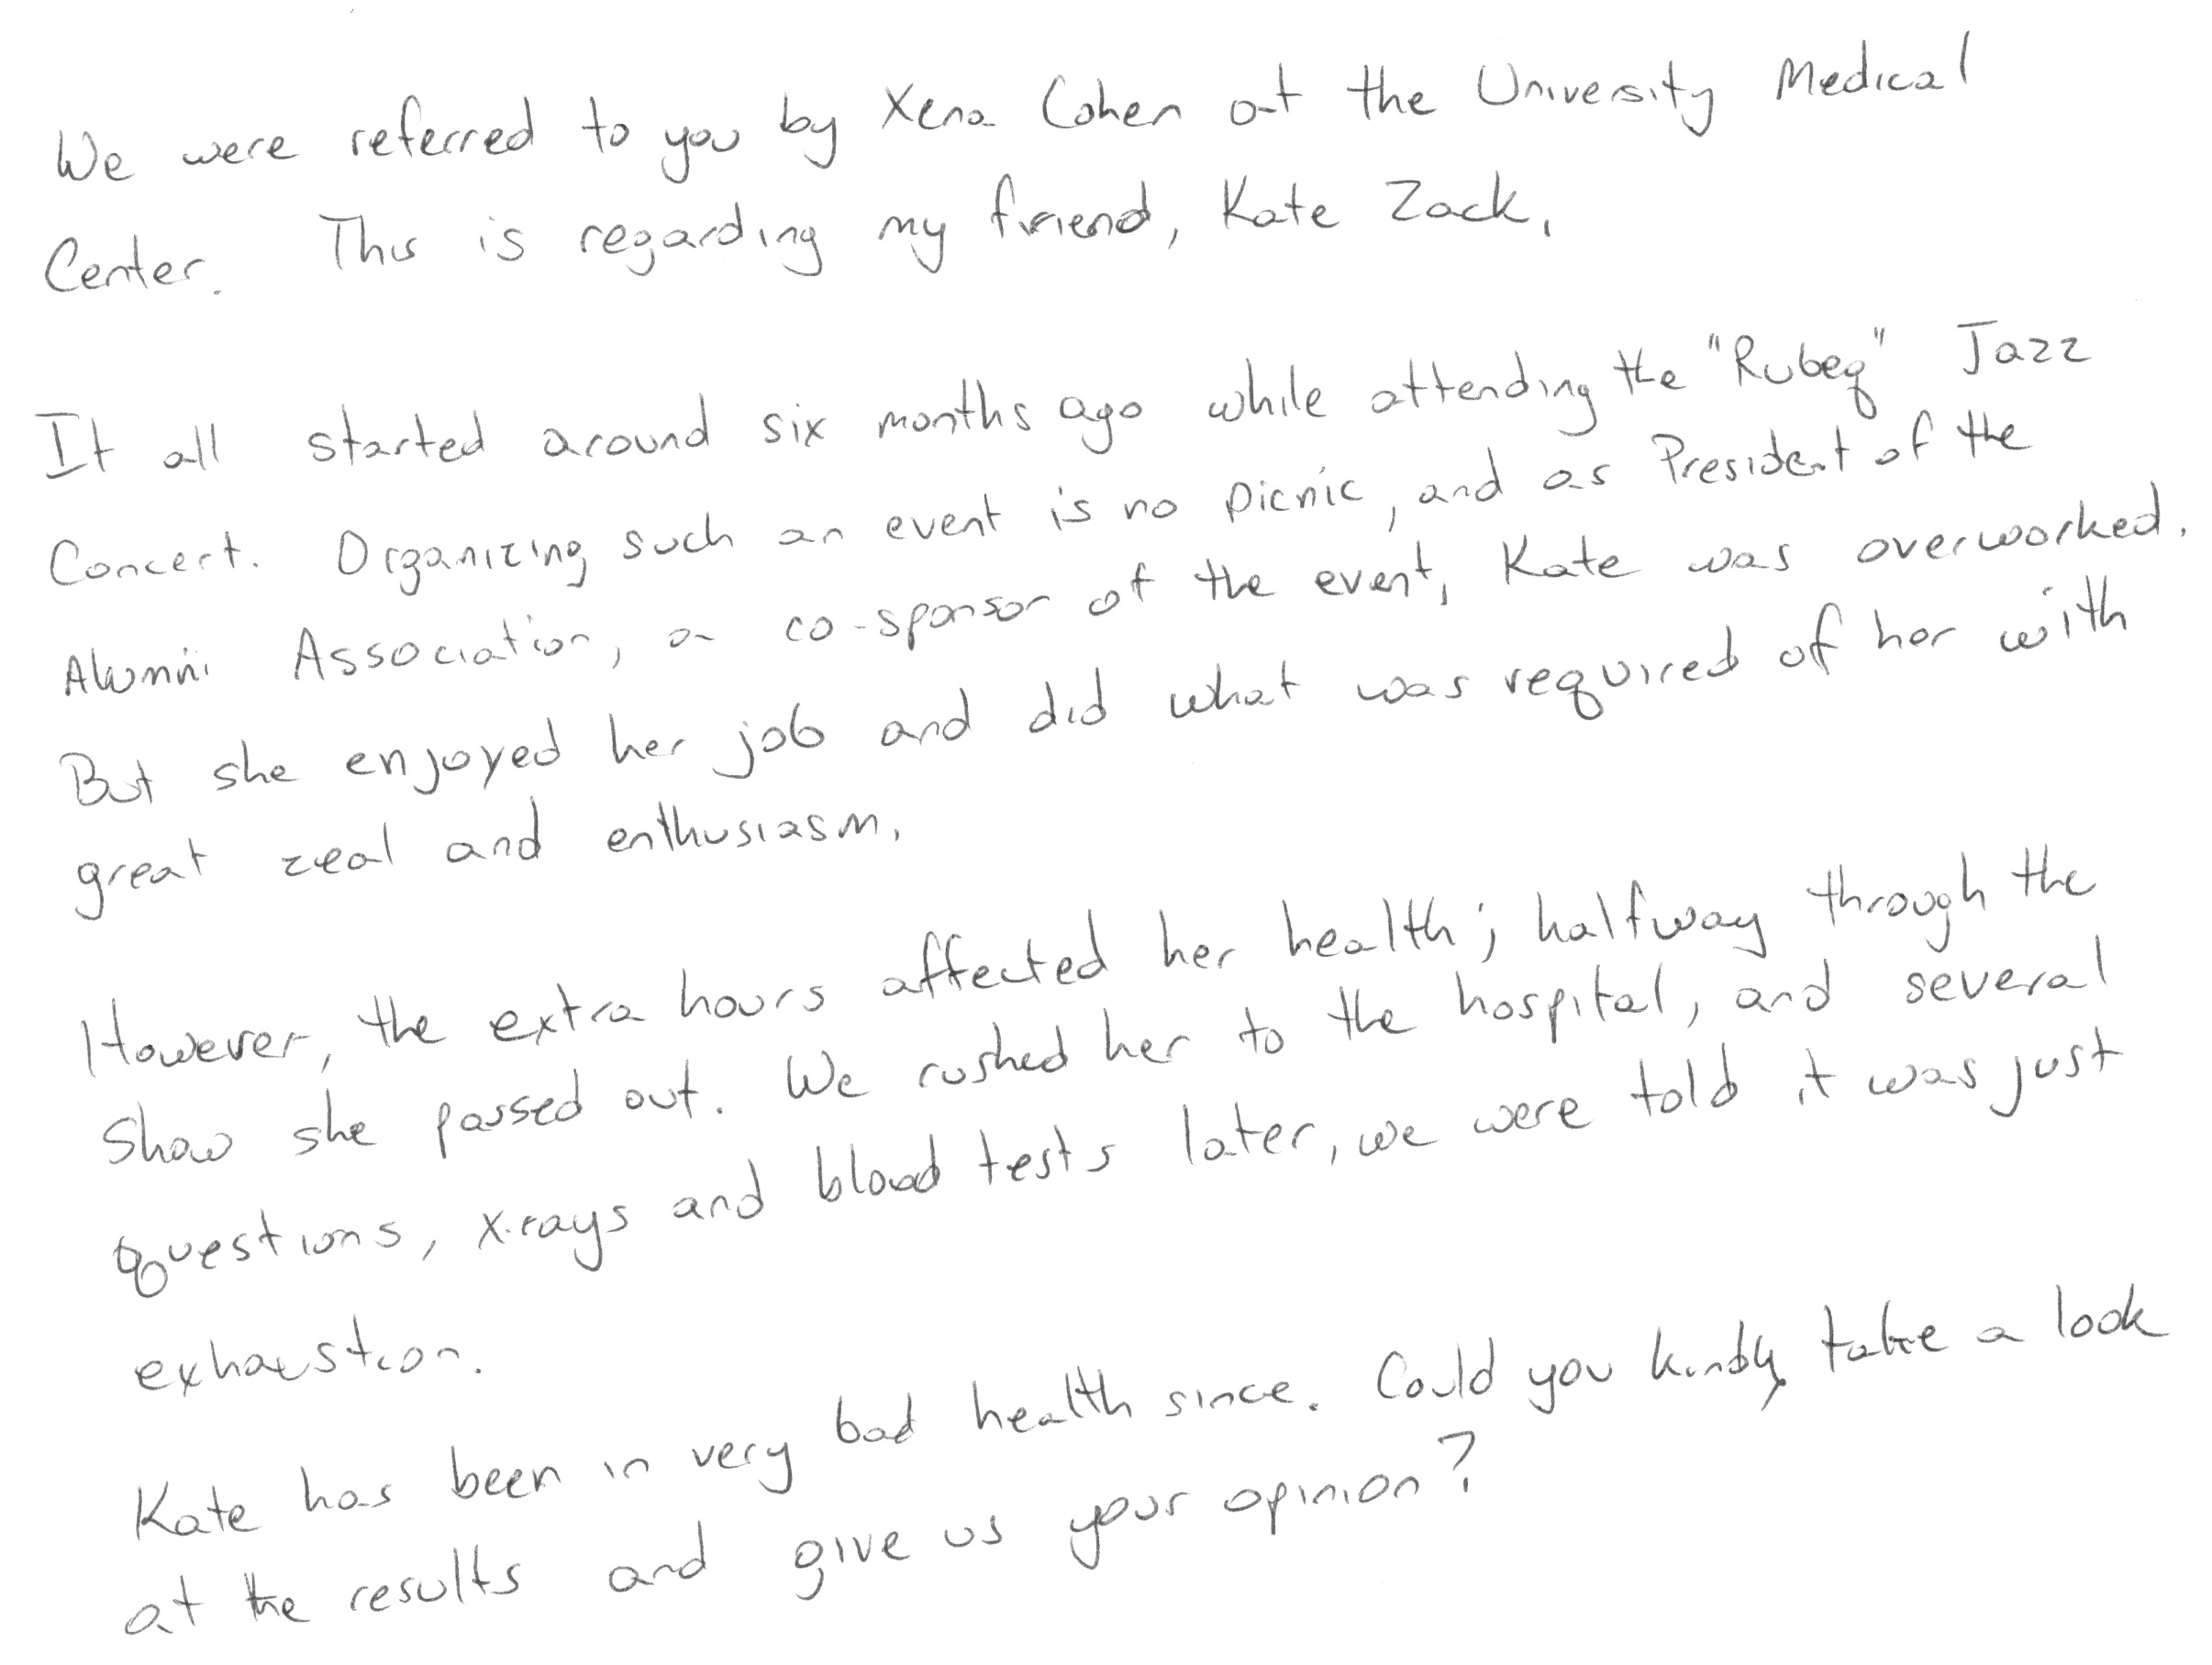 We were referred to you by Xena Cohen at the University Medical
Center. This is regarding my friend, Kate Zack.
It all started around six months ago while attending the "Rubeq" Jazz
Concert. Organizing such an event is no picnic, and as President of the
Alumni Association, a co-sponsor of the event, Kate was overworked.
But she enjoyed her job and did what was required of her with
great zeal and enthusiasm.
However, the extra hours affected her health; halfway through the
show she passed out. We rushed her to the hospital, and several
questions, x-rays and blood tests later, we were told it was just
exhaustion.
Kate has been in very bad health since. Could you kindly take a look
at the results and give us your opinion?